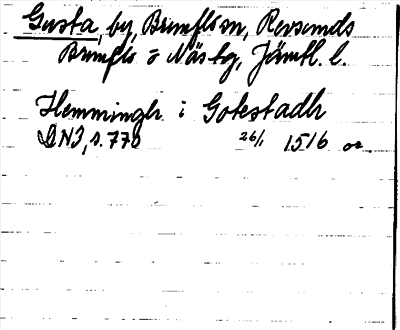 Gusta, by, Brunflo sn, Revsunds
Brunflo o Näs tg, Jämtl. l.
Hemmingh i Gotestadh
DN3, s. 770 26/1 1516 or.